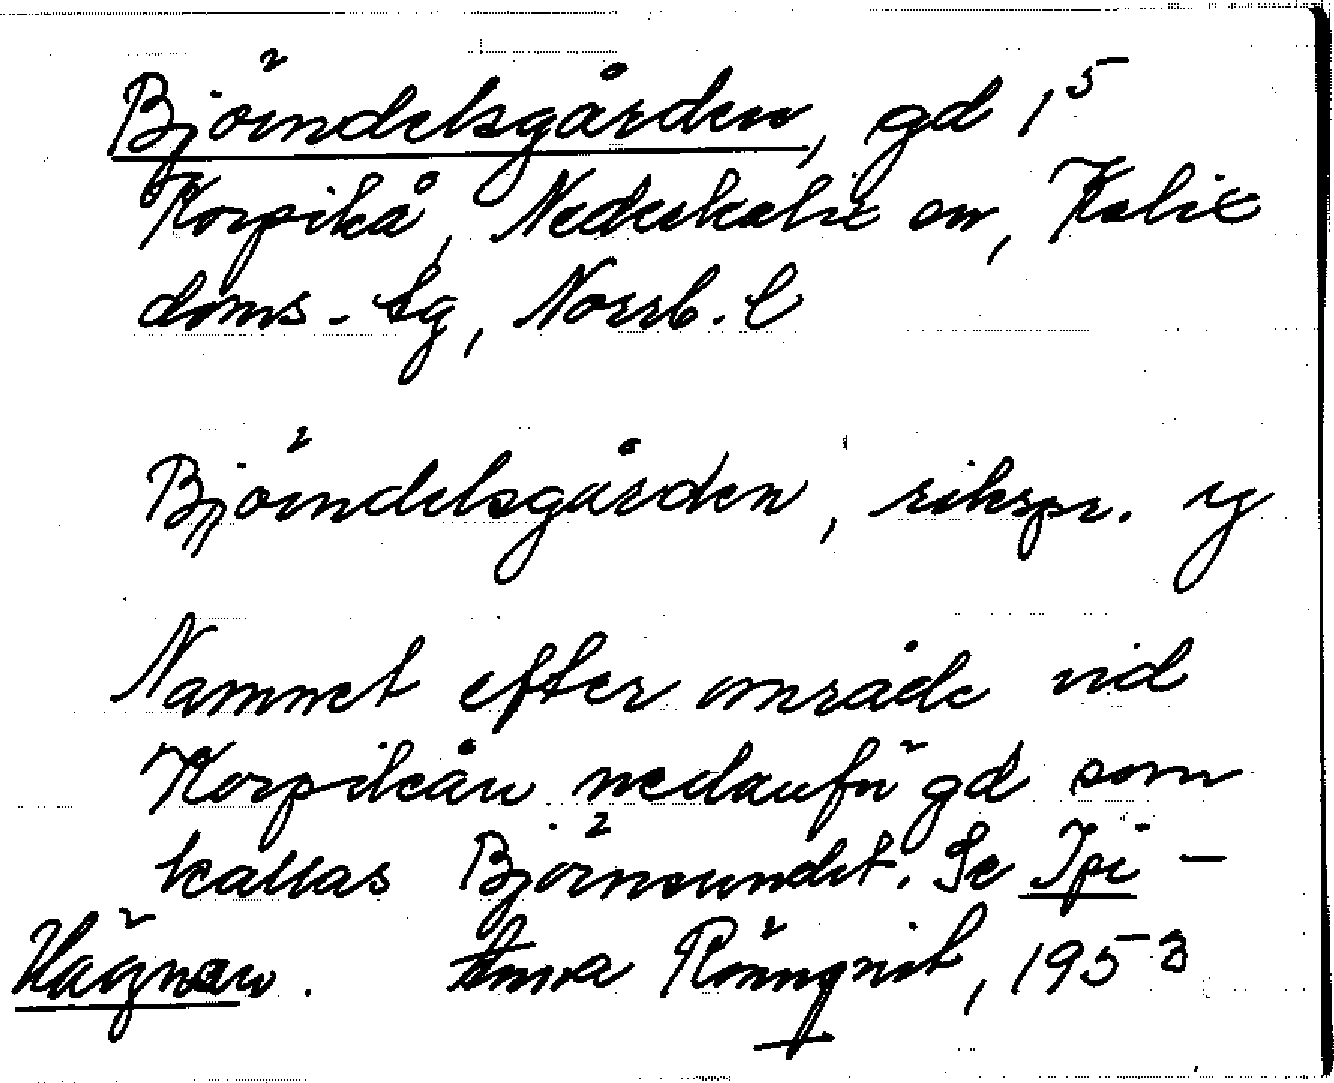 Björndelsgården, gd 1⁵
Korpikå, Nederkalix sn, Kalix
doms. tg, Norrb. l
Björndelsgården, rikspr. ig
Namnet efter område vid
Korpikån nedanför gd som
kallas Björnsundet. Se Ipi-
Hägnan. Anna Rönnqvist, 1953